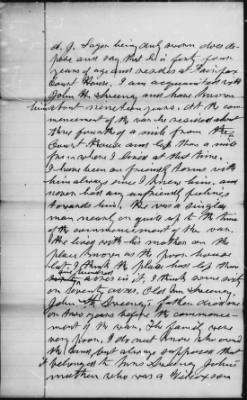 A. J. Sagar being duly sworn does de-
pose and say that he is forty four
years of age and resides at Fairfax
Court House. I am acquainted with
John H. Sweeney and have known
him about nineteen years. At the com-
mencement of the war he resided about
three fourths of a mile from the
Court House and less than a mile
from where I lived at that time.
I have been on friendly terms with
him always since I knew him, and
never had any unfriendly feeling
towards him. He was a single
man nearly or quite up to the time
of the commencement of the war.
He lived with his mother on the
place known as the poor house
lot. I think the place has less than
hundred acres in it. I think some sixty
or seventy acres. Old Mr. Sweeney
John H. Sweeney's father died one
or two years before the commence-
ment of the war. The family were
very poor. I do not know who owned
the land, but always supposed that
it belonged to Mrs Sweeney John's
mother who was a Wilcoxson